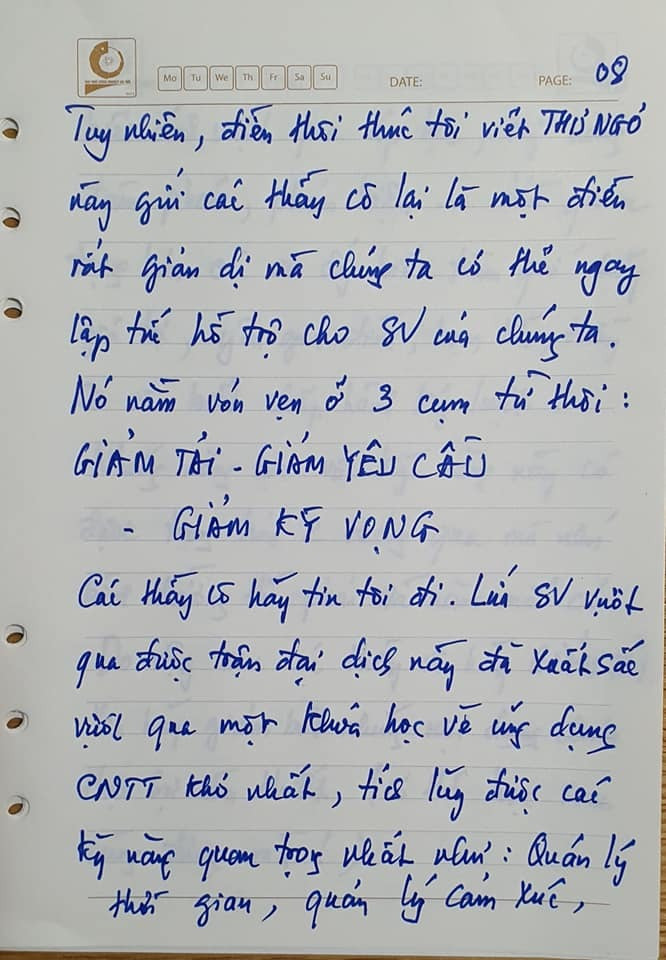 Mo Tu We Th Fr Sa Su DATE: PAGE: 08
Tuy nhiên, điều thôi thúc tôi viết THƯ NGỎ
này gửi các thầy cô lại là một điều
rất giản dị mà chúng ta có thể ngay
lập tức hỗ trợ cho SV của chúng ta.
Nó nằm vỏn vẹn ở 3 cụm từ thôi:
GIẢM TẢI - GIẢM YÊU CẦU
- GIẢM KỲ VỌNG
Các thầy cô hãy tin tôi đi. Lứa SV vượt
qua được trận đại dịch này đã xuất sắc
vượt qua một khoá học về ứng dụng
CNTT khó nhất, tích lũy được các
kỹ năng quan trọng nhất như: Quản lý
thời gian, quản lý cảm xúc,